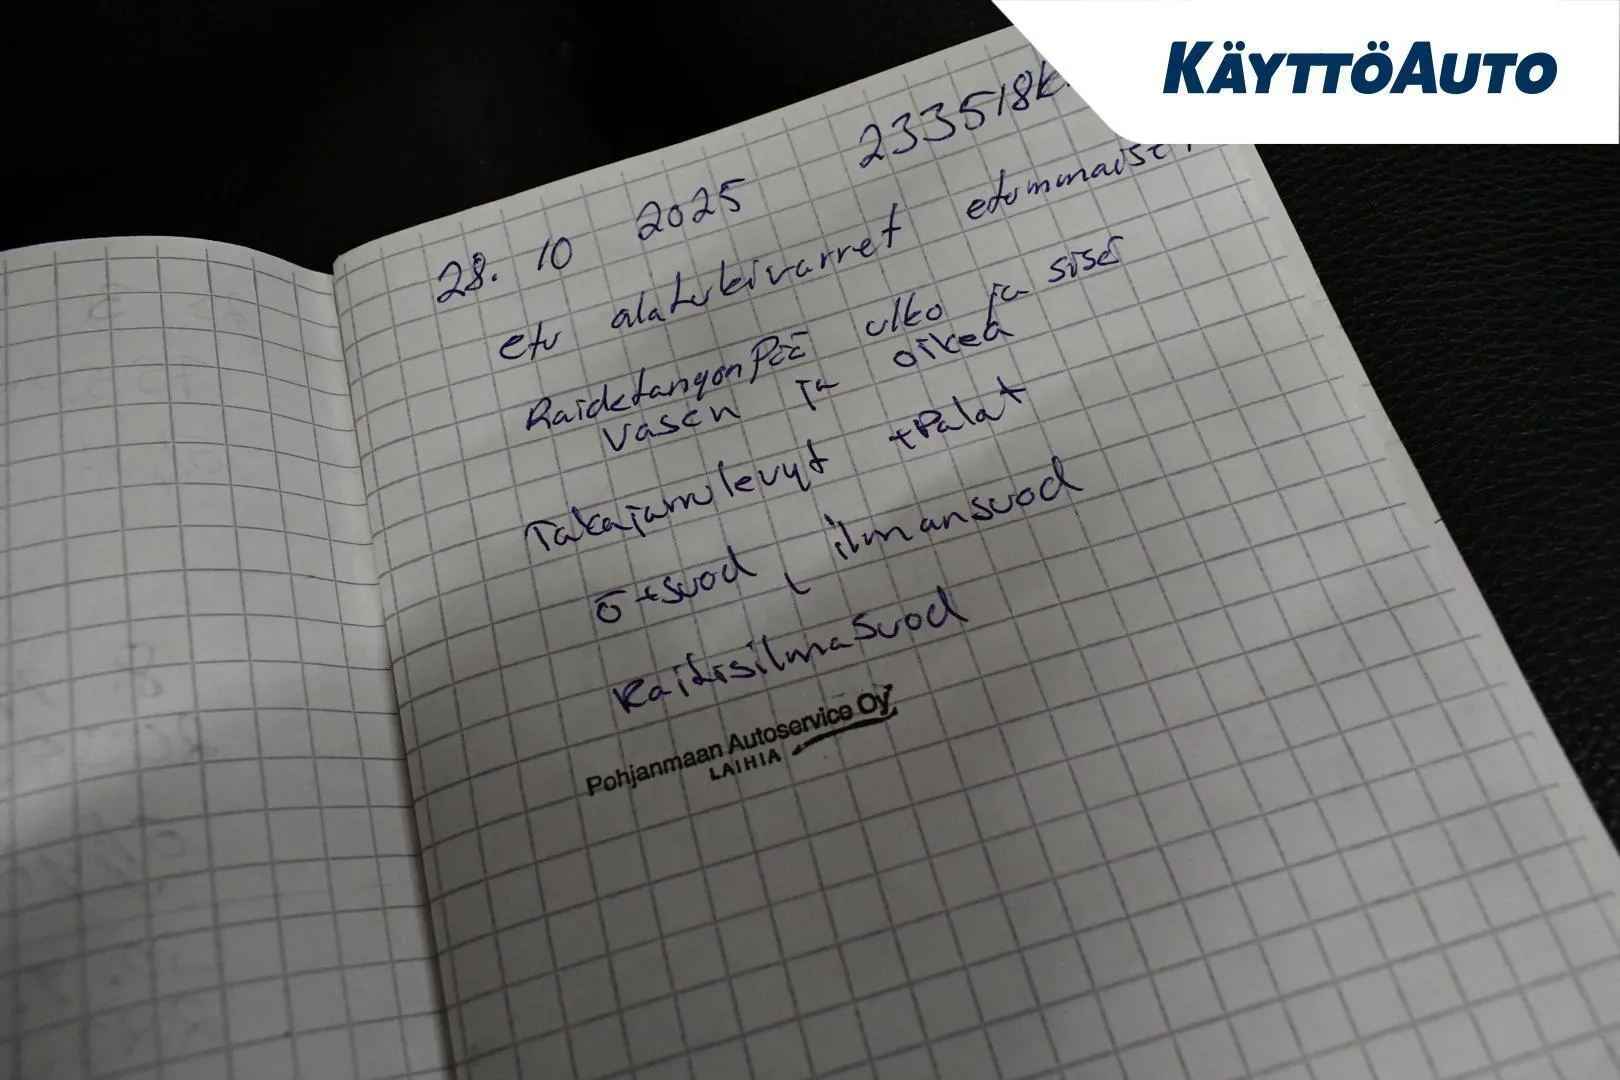 KÄYTTÖAUTO
28. 10 2025 233518k
etu alatukivarret etummaiset
Raidetangon Pää ulko ja sisä
vasen ja oikea
Takajarrulevyt +Palat
ö+suod, ilmansuod
Raitisilmasuod
Pohjanmaan Autoservice Oy
LAIHIA